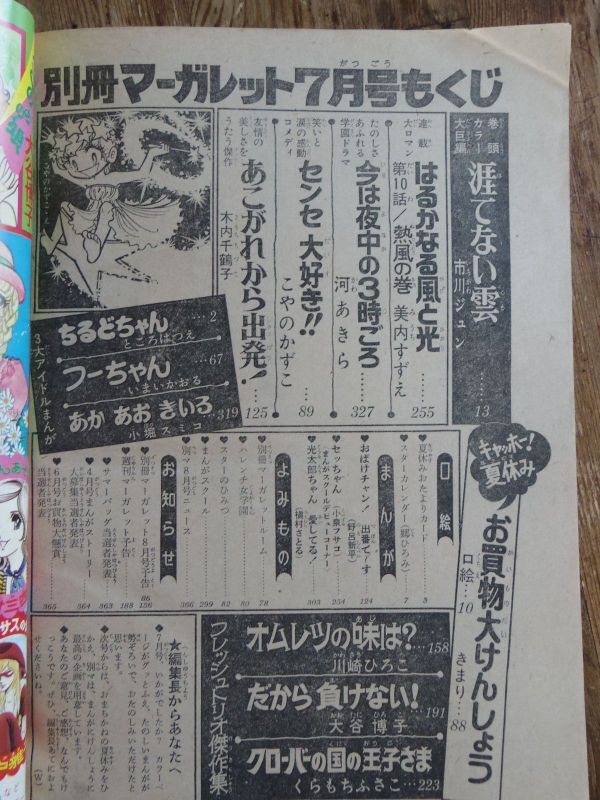 別冊マーガレット7月号もくじ
巻頭カラー大巨編
涯てない雲
市川ジュン
……13
連載大ロマン
はるかなる風と光
第10話/熱風の巻
美内すずえ
……255
たのしさあふれる学園ドラマ
今は夜中の3時ごろ
河あきら
……327
笑いと涙の感動コメディ
センセ大好き!!
こやのかずこ
……89
友情の美しさをうたう傑作
あこがれから出発!
木内千鶴子
……125
3大アイドルまんが
ちるどちゃん……2
ところはつえ
フーちゃん……67
いまいかおる
あか あお きいろ…319
小堀スミコ
キャッホー!夏休み
お買物大けんしょう
口絵…10
きまり…88
口絵
夏休みおたよりカード……3
スターカレンダー(郷ひろみ)……7
まんが
おばけチャン! 出番で~す(野呂新平)……124
セッちゃん(小泉フサコ)……254
まんがスクールデビューコーナー
光太郎ちゃん 愛してる!(槇村さとる)……303
よみもの
別冊マーガレットルーム……78
ハレンチ女学園……80
スターのひみつ……82
まんがスクール……299
別マ8月号ニュース……366
お知らせ
別冊マーガレット8月号予告……156
週刊マーガレット予告……188
サマーバッグ当選者発表……363
4月号まんがストーリー大募集当選者発表……364
6月号お買物大懸賞当選者発表……365
フレッシュトリオ傑作集
オムレツの味は?…158
川崎ひろこ
だから負けない!…191
大谷博子
クローバーの国の王子さま
くらもちふさこ…223
★編集長からあなたへ
7月号、いかがでしたか? カラーページがグッとふえ、たのしいまんがが勢ぞろいで、おたのしみいただけたと思います。
次号からは、おまちかねの夏休みをひかえ、別マは、まんがにけんしょうに最高の企画を用意しています。
あなたのご意見、ご感想、なんでもけっこうです。ぜひ、編集長あてにおよせくださいね。
(W)